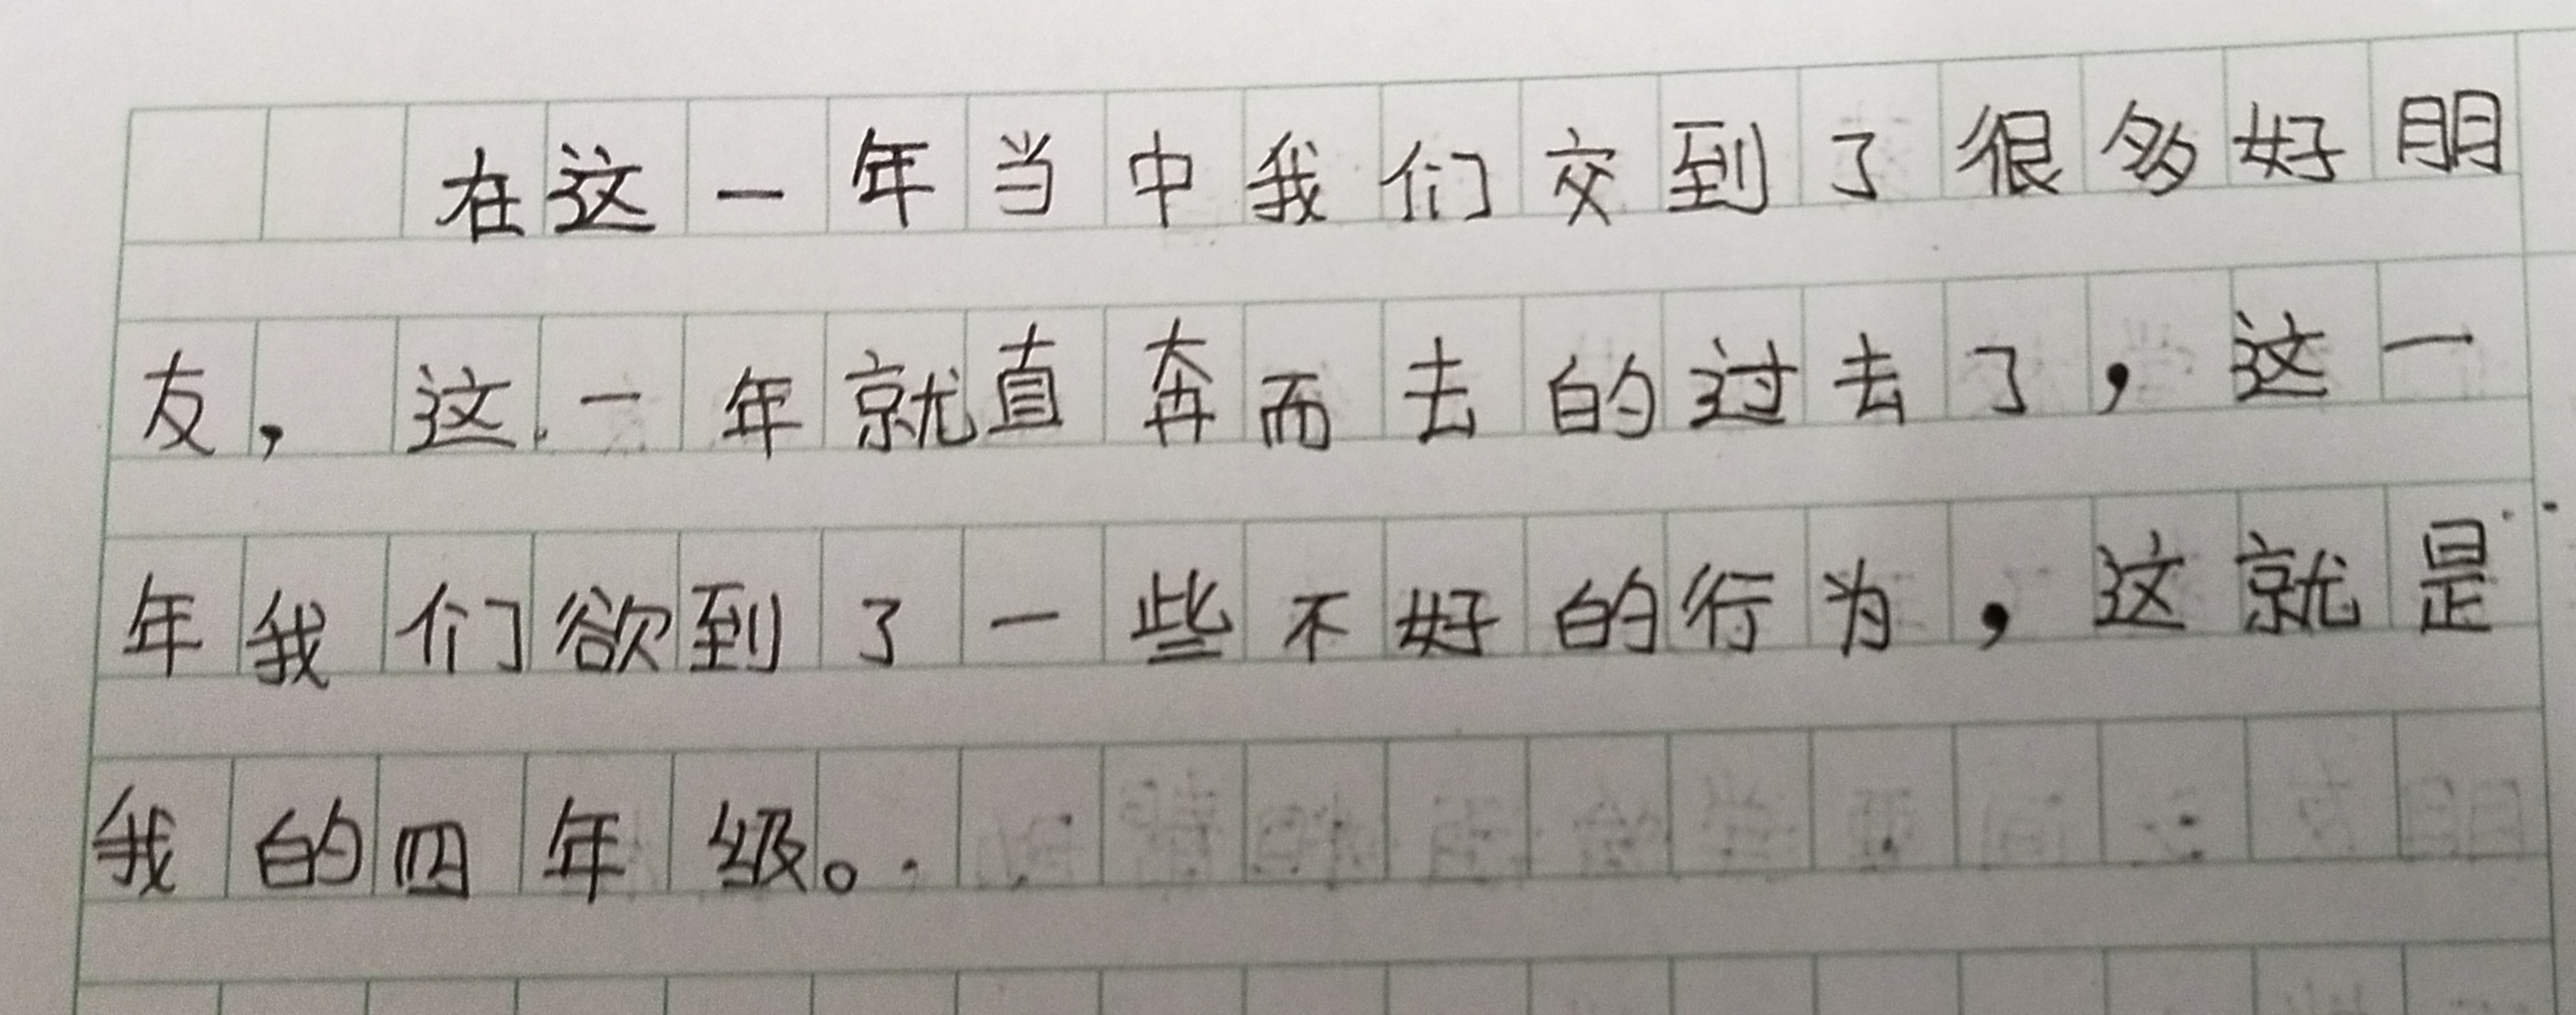 在这一年当中我们交到了很多好朋
友，这一年就直奔而去的过去了，这一
年我们欲到了一些不好的行为，这就是
我的四年级。